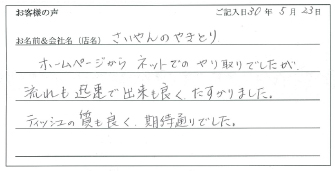 お客様の声 ご記入日30年5月23日
お名前&会社名(店名) さいやんのやきとり
ホームページから ネットでの やり取りでしたが、
流れも 迅速で 出来も良く、たすかりました。
ティッシュの 質も良く、期待通りでした。